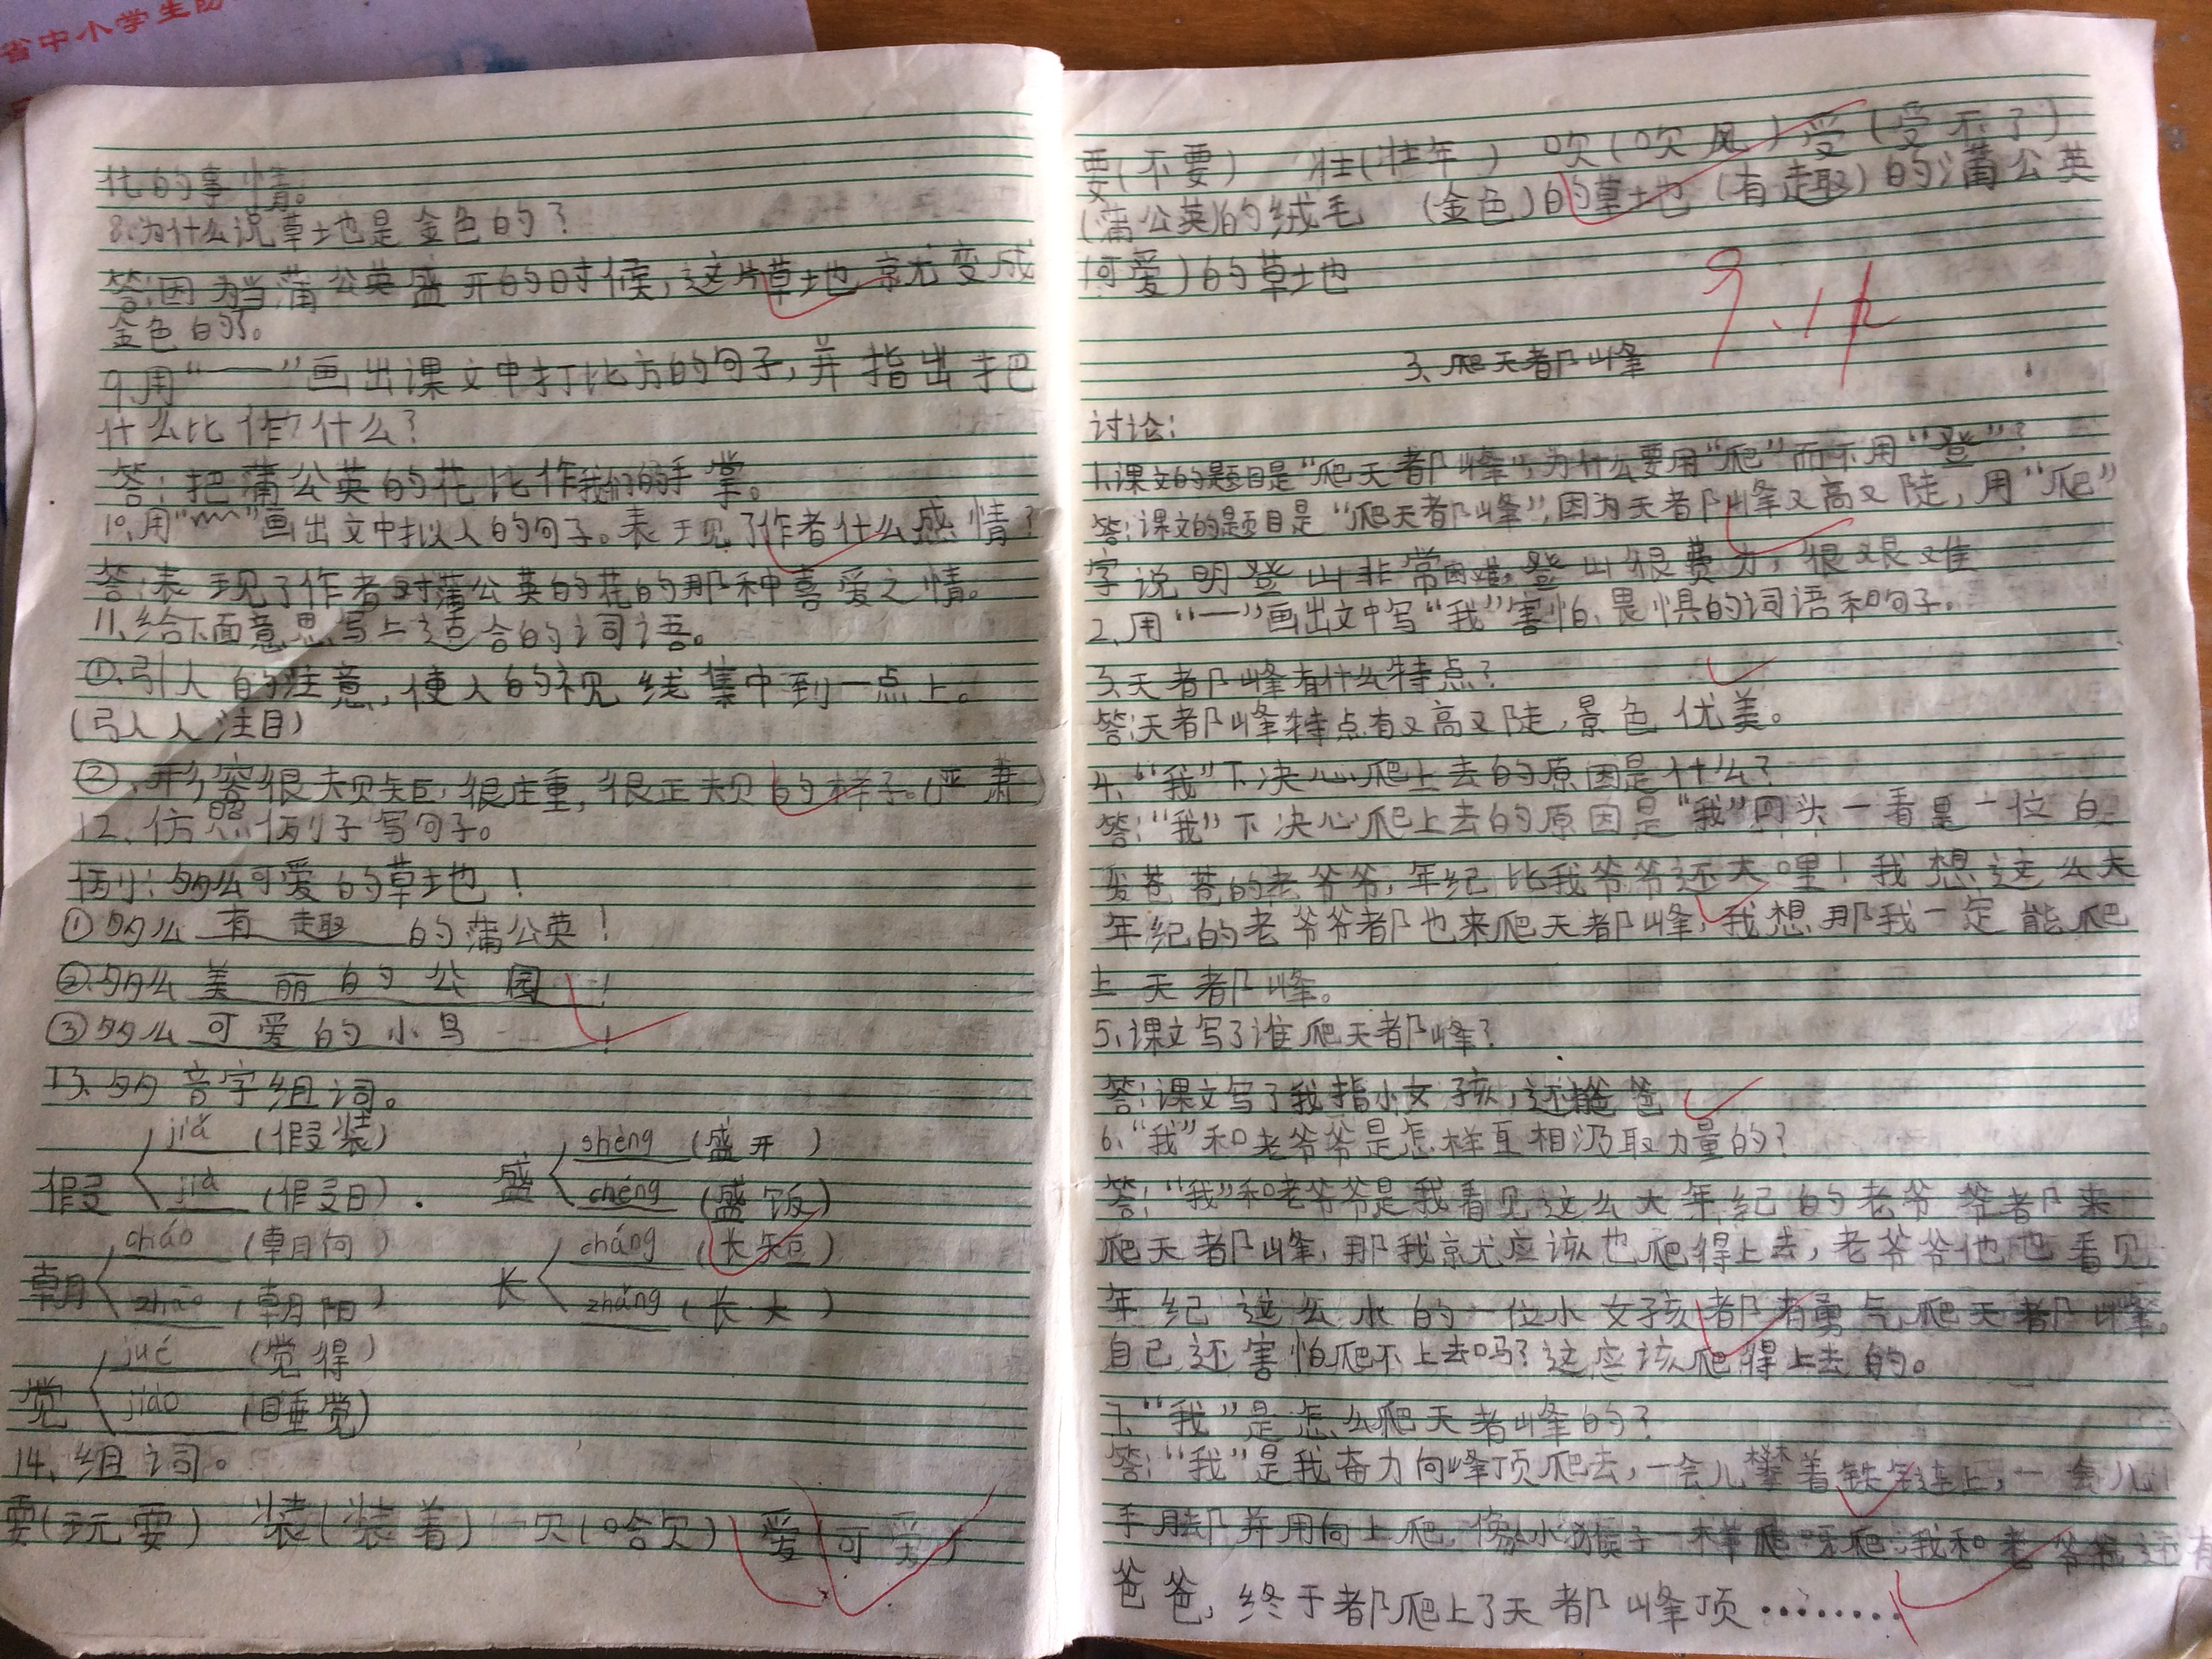 省中小学生防
花的事情。
8.为什么说草地是金色的?
答:因为当蒲公英盛开的时候,这片草地就变成
金色的了。
9.用“——”画出课文中打比方的句子,并指出把
什么比作什么?
答:把蒲公英的花比作我们的手掌。
10.用“﹏﹏”画出文中拟人的句子。表现了作者什么感情?
答:表现了作者对蒲公英的花的那种喜爱之情。
11、给下面意思写上适合的词语。
①.引人的注意,使人的视线集中到一点上。
(引人注目)
②.形容很规矩,很庄重,很正规的样子。(严肃)
12、仿照例子写句子。
例:多么可爱的草地!
①多么 有趣 的蒲公英!
②.多么 美丽的公园!
③多么 可爱的小鸟!
13、多音字组词。
假 jiǎ (假装) 盛 shèng (盛开)
jià (假日) chéng (盛饭)
朝 cháo (朝向) 长 cháng (长短)
zhāo (朝阳) zhǎng (长大)
觉 jué (觉得)
jiào (睡觉)
14、组词。
耍(玩耍) 装(装着) 欠(哈欠) 爱(可爱)
要(不要) 壮(壮年) 吹(吹风) 受(受不了)
(蒲公英)的绒毛 (金色)的草地 (有趣)的蒲公英
(可爱)的草地
9.14
3、爬天都峰
讨论:
1.课文的题目是“爬天都峰”,为什么要用“爬”而不用“登”?
答:课文的题目是“爬天都峰”,因为天都峰又高又陡,用“爬”
字说明登山非常困难,登山很费力,很艰难
2.用“—”画出文中写“我”害怕、畏惧的词语和句子。
3、天都峰有什么特点?
答:天都峰特点有又高又陡,景色优美。
4、“我”下决心爬上去的原因是什么?
答:“我”下决心爬上去的原因是“我”回头一看是一位白
发苍苍的老爷爷,年纪比我爷爷还大哩!我想这么大
年纪的老爷爷都也来爬天都峰,我想那我一定能爬
上天都峰。
5、课文写了谁爬天都峰?
答:课文写了我指小女孩,还爸爸
6、“我”和老爷爷是怎样互相汲取力量的?
答:“我”和老爷爷是我看见这么大年纪的老爷爷都来
爬天都峰,那我就应该也爬得上去,老爷爷他也看见
年纪这么小的一位小女孩都有勇气爬天都峰。
自己还害怕爬不上去吗?这应该爬得上去的。
7、“我”是怎么爬天者峰的?
答:“我”是我奋力向峰顶爬去,一会儿攀着铁链上,一会儿
手脚并用向上爬,像小猴子一样爬呀爬,我和老爷爷还有
爸爸,终于都爬上了天都峰顶………